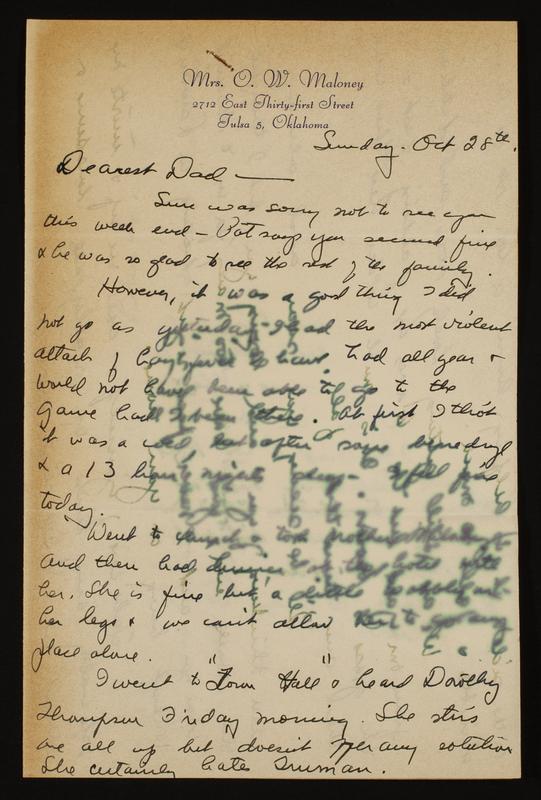 Mrs. O. W. Maloney
2712 East Thirty-first Street
Tulsa 5, Oklahoma
Sunday. Oct 28th.
Dearest Dad —
Sure was sorry not to see you
this week end — Pat says you seemed fine
& he was so glad to see the rest of the family.
However, it was a good thing I did
not go as yesterday I had the most violent
attack of hay fever I have had all year &
would not have been able to go to the
game had I been there. At first I thot
it was a cold, but after benedryl
& a 13 hour night I feel fine
today.
Went to church & took Mother Maloney
and then had dinner at the hotel with
her. She is fine but a little wobbly on
her legs & we can't allow her to go any
place alone.
I went to "Town Hall" & heard Dorothy
Thompson Friday morning. She stirs
one all up but doesn't offer any solution
She certainly hates Truman.